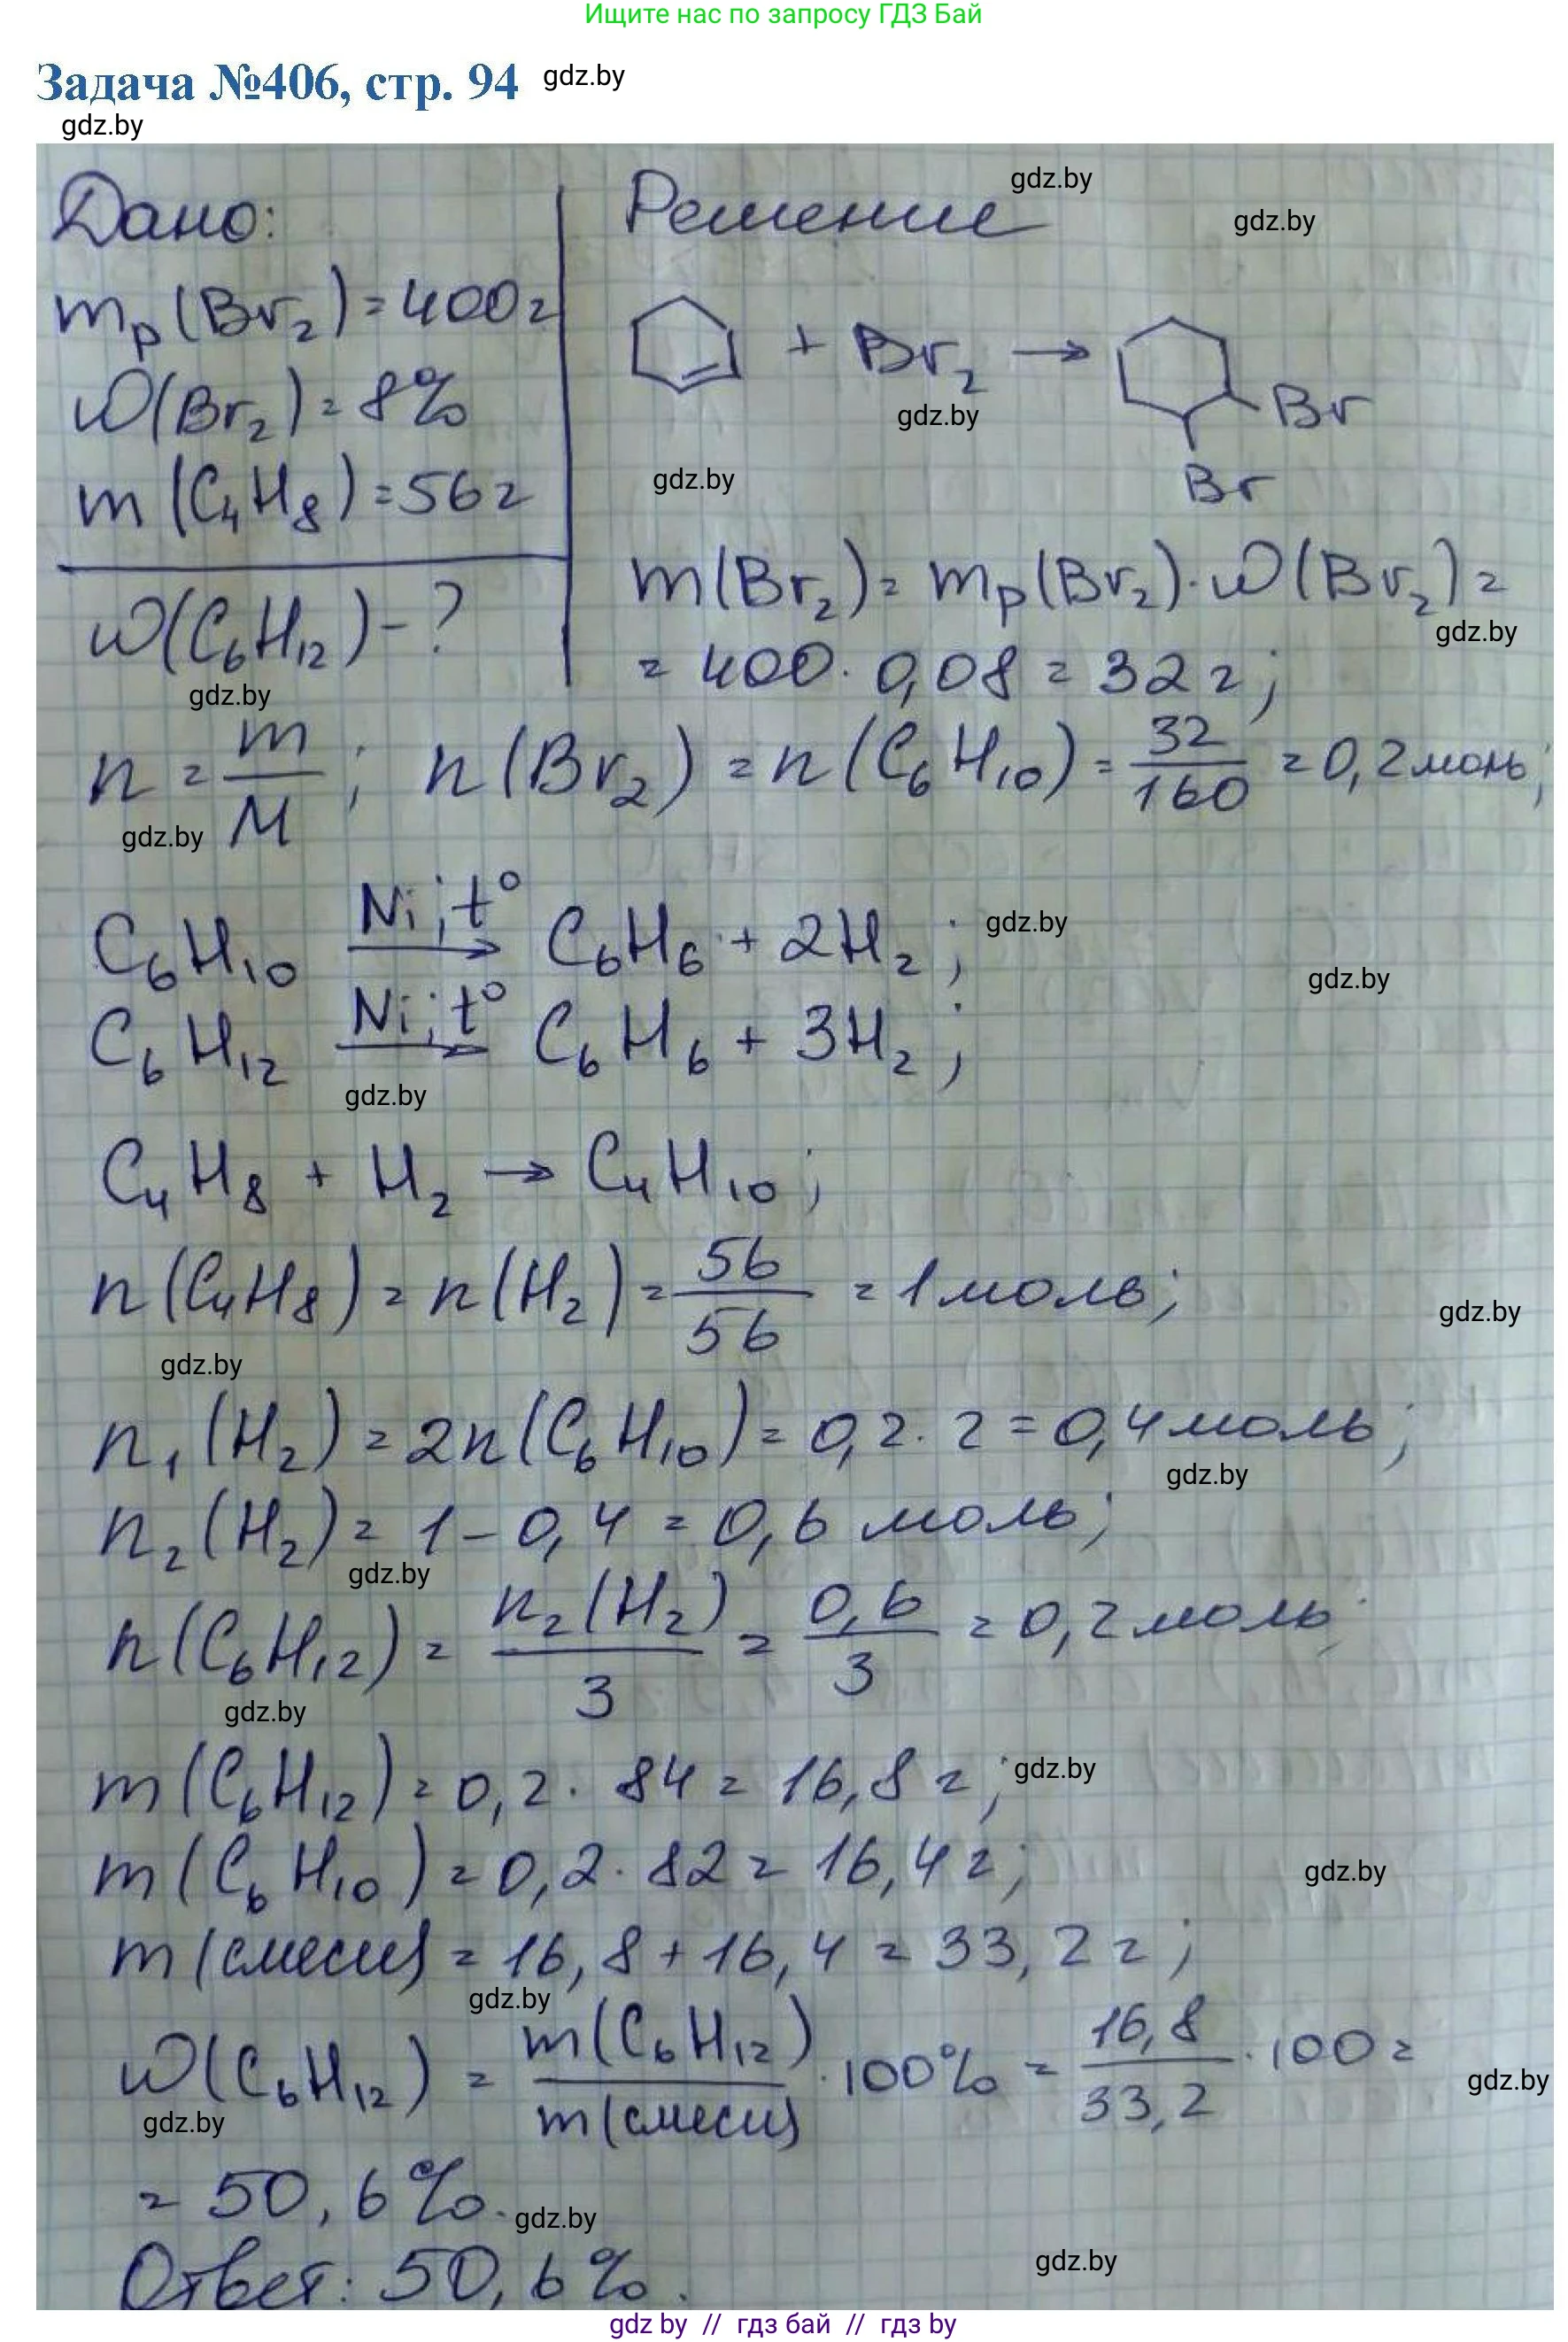 Ищите нас по запросу ГДЗ Бай
Задача №406, стр. 94 gdz.by
gdz.by
Дано:
Решение
gdz.by
gdz.by
mр(Br₂) = 400 г
ω(Br₂) = 8%
m(C₄H₈) = 56 г
ω(C₆H₁₂) - ?
gdz.by
+ Br₂ →
Br
Br
gdz.by
gdz.by
m(Br₂) = mр(Br₂) · ω(Br₂) =
gdz.by
= 400 · 0,08 = 32 г;
n = m/M; n(Br₂) = n(C₆H₁₀) = 32/160 = 0,2 моль;
gdz.by
C₆H₁₀ Ni; t° → C₆H₆ + 2H₂;
gdz.by
gdz.by
C₆H₁₂ Ni; t° → C₆H₆ + 3H₂;
gdz.by
C₄H₈ + H₂ → C₄H₁₀;
n(C₄H₈) = n(H₂) = 56/56 = 1 моль;
gdz.by
gdz.by
n₁(H₂) = 2n(C₆H₁₀) = 0,2 · 2 = 0,4 моль;
gdz.by
n₂(H₂) = 1 - 0,4 = 0,6 моль;
gdz.by
n(C₆H₁₂) = n₂(H₂)/3 = 0,6/3 = 0,2 моль;
gdz.by
m(C₆H₁₂) = 0,2 · 84 = 16,8 г;
gdz.by
m(C₆H₁₀) = 0,2 · 82 = 16,4 г;
gdz.by
m(смеси) = 16,8 + 16,4 = 33,2 г;
gdz.by
ω(C₆H₁₂) = m(C₆H₁₂)/m(смеси) · 100% = 16,8/33,2 · 100 =
gdz.by
gdz.by
= 50,6%.
gdz.by
Ответ: 50,6%.
gdz.by
gdz by // гдз бай // гдз by